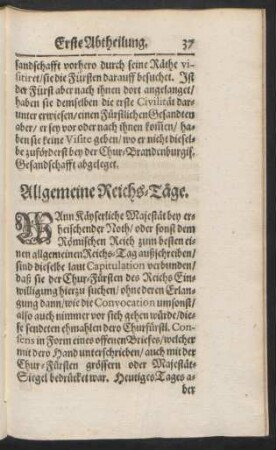 Erste Abtheilung. 37
sandschafft vorhero durch seine Räthe vi-
sitiret/sie die Fürsten darauff besuchet. Ist
der Fürst aber nach ihnen dort angelanget/
haben sie demselben die erste Civilität dar-
unter erwiesen/einen Fürstlichen Gesandten
aber/ er sey vor oder nach ihnen kom̃en/ ha-
ben sie keine Visite geben/wo er nicht diesel-
be zuförderst bey der Chur-Brandenburgis.
Gesandschafft abgeleget.
Allgemeine Reichs-Täge.
WAnn Käyserliche Majestät bey er-
heischender Noth/ oder sonst dem
Römischen Reich zum besten ei-
nen allgemeinen Reichs-Tag außschreiben/
sind dieselbe laut Capitulation verbunden/
daß sie der Chur-Fürsten des Reichs Ein-
willigung hierzu suchen/ohne deren Erlan-
gung dann/wie die Convocation umsonst/
also auch nimmer vor sich gehen würde/die-
se sendeten ehmahlen dero Churfürstl. Con-
sens in Form eines offenen Briefes/welcher
mit dero Hand unterschrieben/ auch mit der
Chur-Fürsten grössern oder Majestät-
Siegel bedrücket war. Heutiges Tages a-
ber